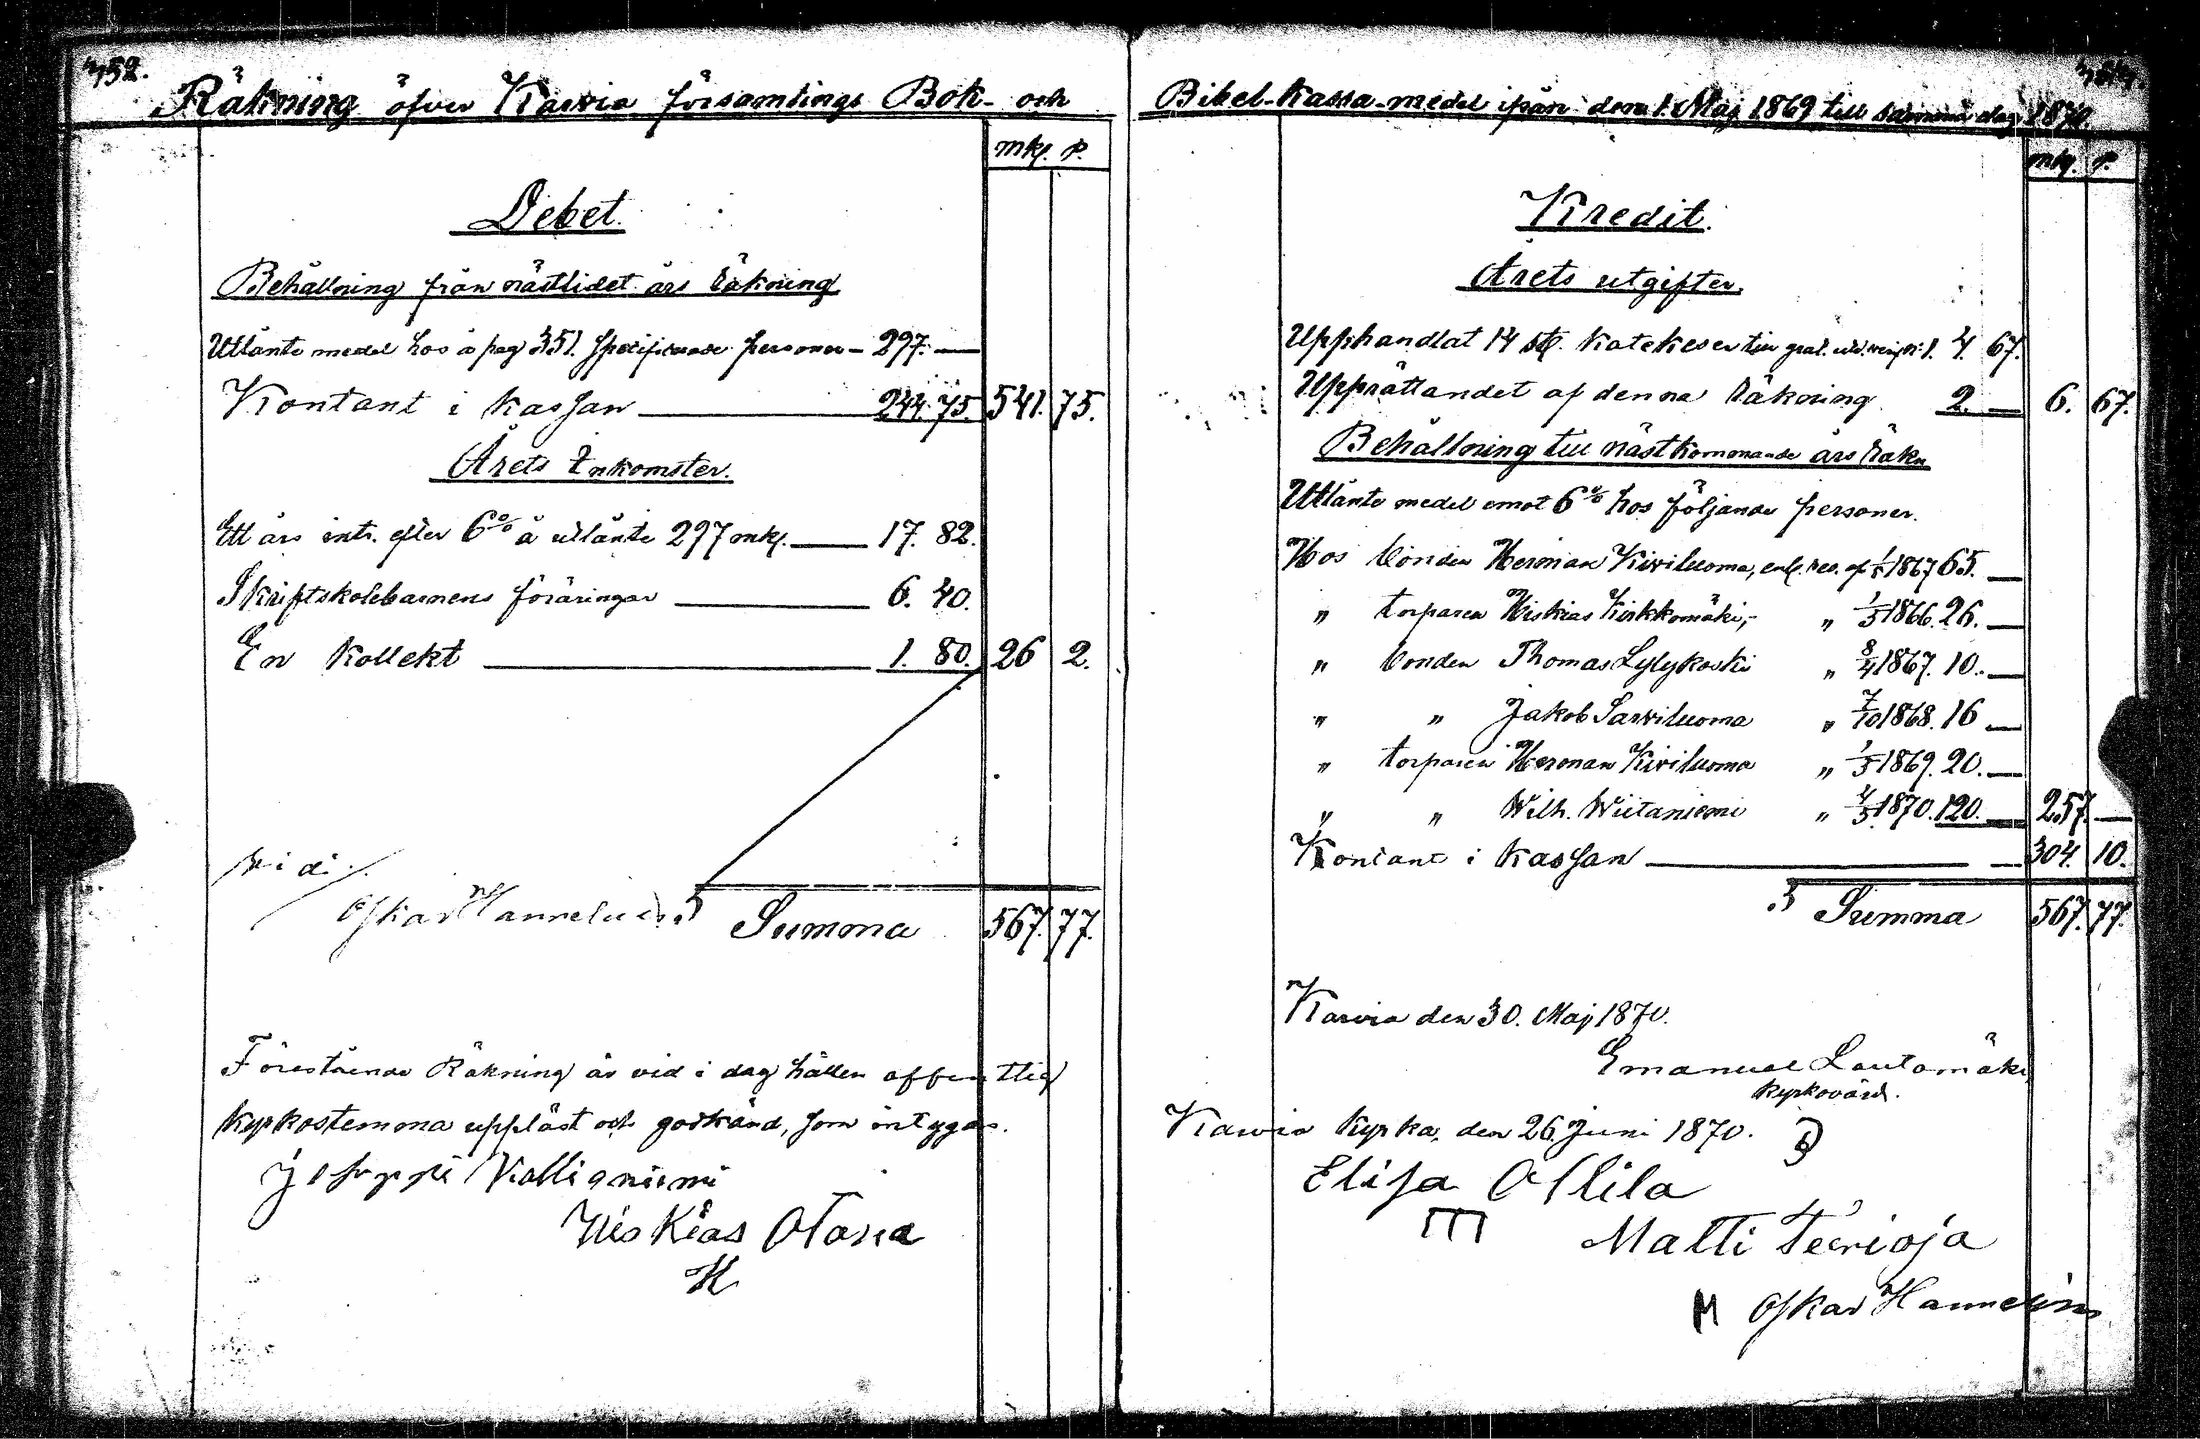 Räkning öfver Karvia församlings Bok- och
mk. p.
Debet.
Behållning från nästlidet års räkning
Utlånte medel hos å pag 351. specificerade personer — 297. —
Kontant i kassan — 244. 75. 541. 75.
Årets Inkomster.
Ett års intr. efter 6% å utlånte 297 mk. — 17. 82.
Skriftskolebarnens föräringar — 6. 40.
En kollekt — 1. 80. 26 2.
vidi.
Oskar Hannelius
Summa 567. 77.
Förestående Räkning är vid i dag hållen offentlig
kyrkostemma uppläst och godkänd, som intygas.
Joseppi Kallioniemi
Hiskias Otava
Bibel-Kassa-medel ifrån den 1. Maj 1869 till samma dag 1870.
mk. p.
Kredit.
Årets utgifter.
Upphandlat 14 st. katekeser till grat. 1. 4. 67.
Upprättandet af denna räkning 2. — 6. 67.
Behållning till nästkommande års räkn
Utlånte medel emot 6% hos följande personer.
Hos bonden Herman Kiviluoma, enl. rev. af 1/5 1867 65. —
„ torparen Hiskias Kirkkomäki, „ 1/5 1866. 26. —
„ bonden Thomas Lylykoski „ 8/4 1867. 10. —
„ „ Jakob Sarviluoma „ 7/10 1868. 16 —
„ torparen Herman Kiviluoma „ 1/5 1869. 20. —
„ „ Wilh. Wiitaniemi „ 4/5 1870. 120. — 257. —
Kontant i kassan — 304. 10.
Summa 567. 77.
Karvia den 30. Maj 1870.
Emanuel Lautamäki
kyrkovärd.
Karvia kyrka, den 26. Juni 1870.
Elisa Ollila
Matti Teerioja
M Oskar Hannelius